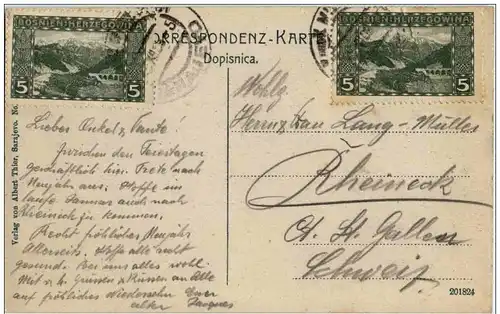 BOSNIEN-HERZEGOWINA
5 5
BOSNIEN-HERZEGOWINA
5 5
CORRESPONDENZ-KARTE
Dopisnica.
Verlag von Albert Thier, Sarajevo. No.
Lieber Onkel & Tante!
zwischen den Feiertagen
geschäftlich hier. Trete nach
Neujahr aus. Hoffe im
laufe Januar auch nach
Rheineck zu kommen.
Recht fröhliches Neujahr
Allerseits. Hoffe alle recht
gesund. Bei uns alles wohl.
Mit v. h. Grüssen & Küssen an Alle
auf fröhliches Wiedersehn Euer
alter Jacques
Wohlg.
Herrn & Frau Lang-Müller
Rheineck
Ct. St. Gallen
Schweiz
201824